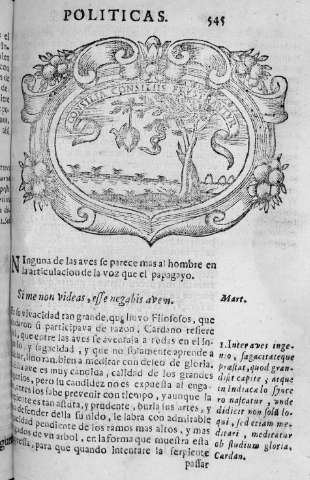 POLITICAS. 545
CONSILIA CONSILIIS
NInguna de las aves se parece mas al hombre en
la articulacion de la voz que el papagayo.
Si me non videas, esse negabis avem.
Mart.
Es su vivacidad tan grande, que huvo Filosofos, que
si participava de razon. Cardano refiere
que entre las aves se aventaja a todas en el
y sagacidad, y que no solamente aprende a
sino tambien a meditar con deseo de gloria.
ave es muy candida, calidad de los grandes
pero su candidez no es expuesta al enga-
los sabe prevenir con tiempo, y aunque la
es tan astuta, y prudente, burla sus artes, y
defender della su nido, le labra con admirable
pendiente de los ramos mas altos, y mas
de vn arbol, en la forma que muestra esta
para que quando intentare la serpiente
passar
1. Inter aves inge-
nio, sagacitateque
præstat, quod gran-
di sit capite, atque
in India cælo synce-
ro nascatur, unde
didicit non solū lo-
qui, sed etiam me-
ditari, meditatur
ob studium gloriæ.
Cardan.